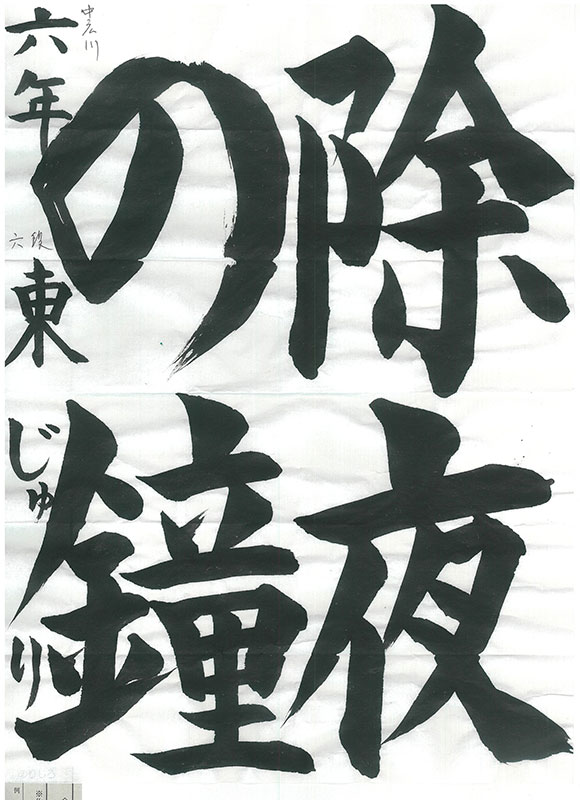 除夜
の鐘
中広川
六年 東 じゅり
六段
例